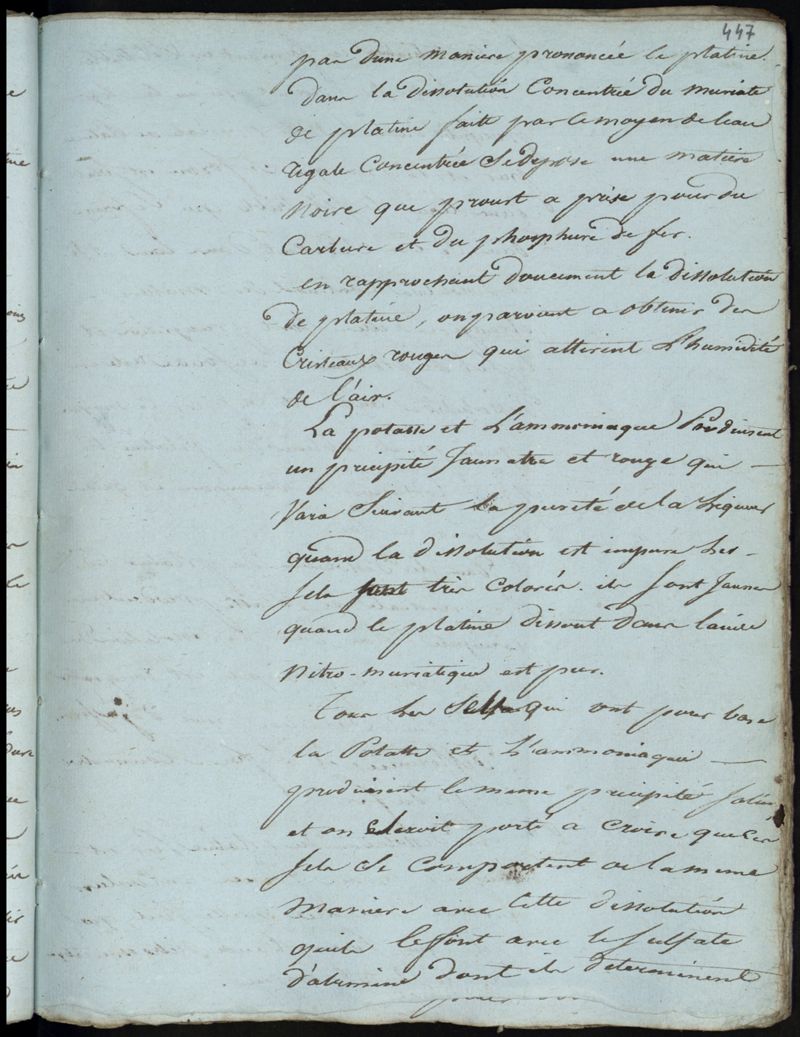 447
par d'une maniere prononcée le platine.
dans la dissolution Concentrée du muriate
de platine faite par le moyen de l'eau
regale Concentrée se depose une matiere
Noire que proust a prise pour du
Carbure et du phosphure de fer.
en rapprochant doucement la dissolution
de platine, on parvient a obtenir des
Cristeaux rouges qui attirent L'humidité
de l'air.
La potasse et L'ammoniaque Produisent
un precipité Jaunatre et rouge qui —
Varie Suivant la pureté de la Liqueur
quand la dissolution est impure Les —
sels sont très Colorés. ils sont Jaunes
quand le platine dissout dans l'acide
Nitro-muriatique est pur.
Tous Les Sels qui ont pour base
la Potasse et L'ammoniaque —
produisent le meme precipité salin
et on seroit porté a croire que Ces
sels se comportent de la meme
Maniere avec Cette dissolution
qu'ils le font avec le sulfate
d'alumine dont ils determinent